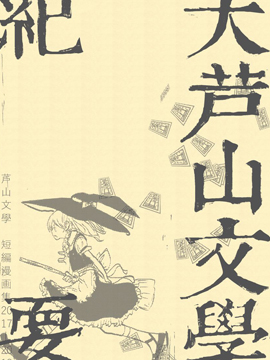 大芦山文學
紀要
芹山文學 短編漫画集2017